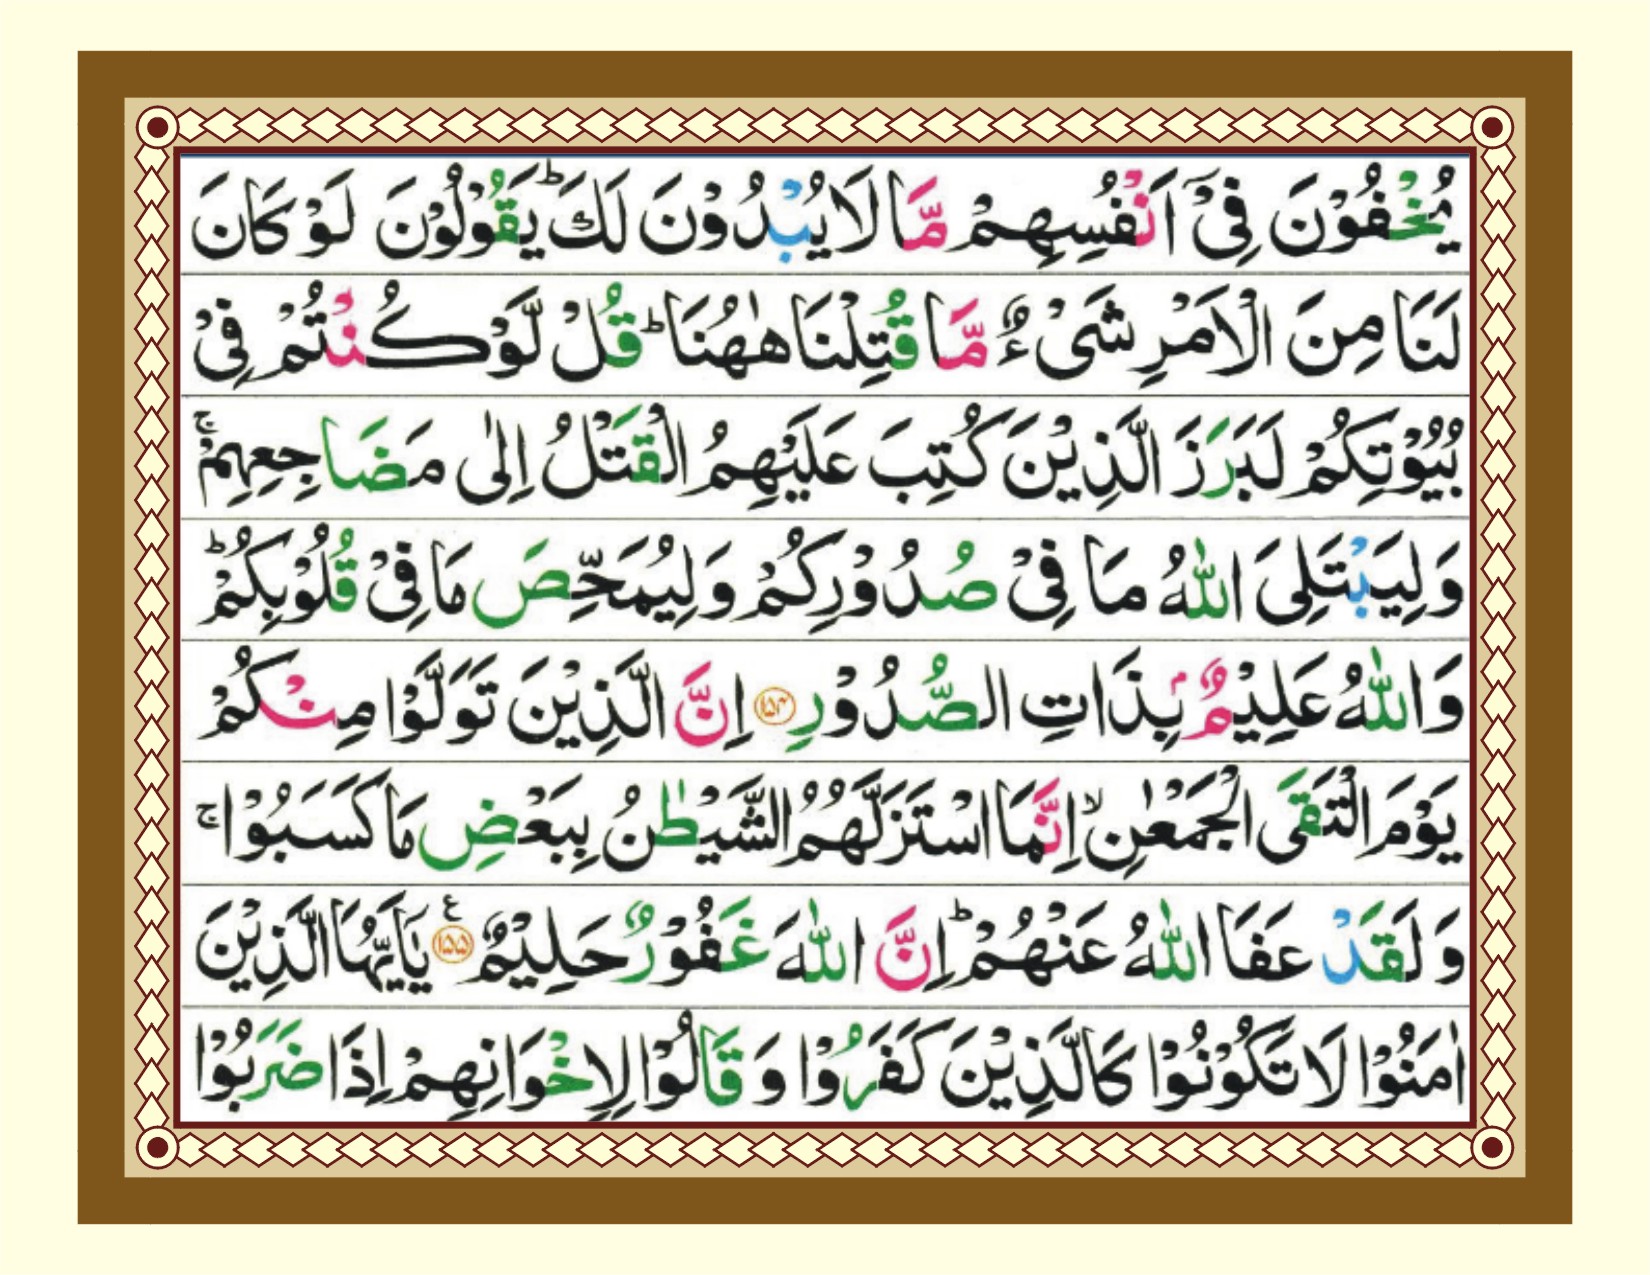 يُخْفُوْنَ فِيْۤ اَنْفُسِهِمْ مَّا لَا يُبْدُوْنَ لَكَ ؕ يَقُوْلُوْنَ لَوْ كَانَ
لَنَا مِنَ الْاَمْرِ شَيْءٌ مَّا قُتِلْنَا هٰهُنَا ؕ قُلْ لَّوْ كُنْتُمْ فِيْ
بُيُوْتِكُمْ لَبَرَزَ الَّذِيْنَ كُتِبَ عَلَيْهِمُ الْقَتْلُ اِلٰى مَضَاجِعِهِمْ ۚ
وَلِيَبْتَلِيَ اللّٰهُ مَا فِيْ صُدُوْرِكُمْ وَلِيُمَحِّصَ مَا فِيْ قُلُوْبِكُمْ ؕ
وَاللّٰهُ عَلِيْمٌۢ بِذَاتِ الصُّدُوْرِ ۝۱۵۴ اِنَّ الَّذِيْنَ تَوَلَّوْا مِنْكُمْ
يَوْمَ الْتَقَى الْجَمْعٰنِ ۙ اِنَّمَا اسْتَزَلَّهُمُ الشَّيْطٰنُ بِبَعْضِ مَا كَسَبُوْا ۚ
وَلَقَدْ عَفَا اللّٰهُ عَنْهُمْ ؕ اِنَّ اللّٰهَ غَفُوْرٌ حَلِيْمٌ ۝۱۵۵ ع يٰۤاَيُّهَا الَّذِيْنَ
اٰمَنُوْا لَا تَكُوْنُوْا كَالَّذِيْنَ كَفَرُوْا وَ قَالُوْا لِاِخْوَانِهِمْ اِذَا ضَرَبُوْا